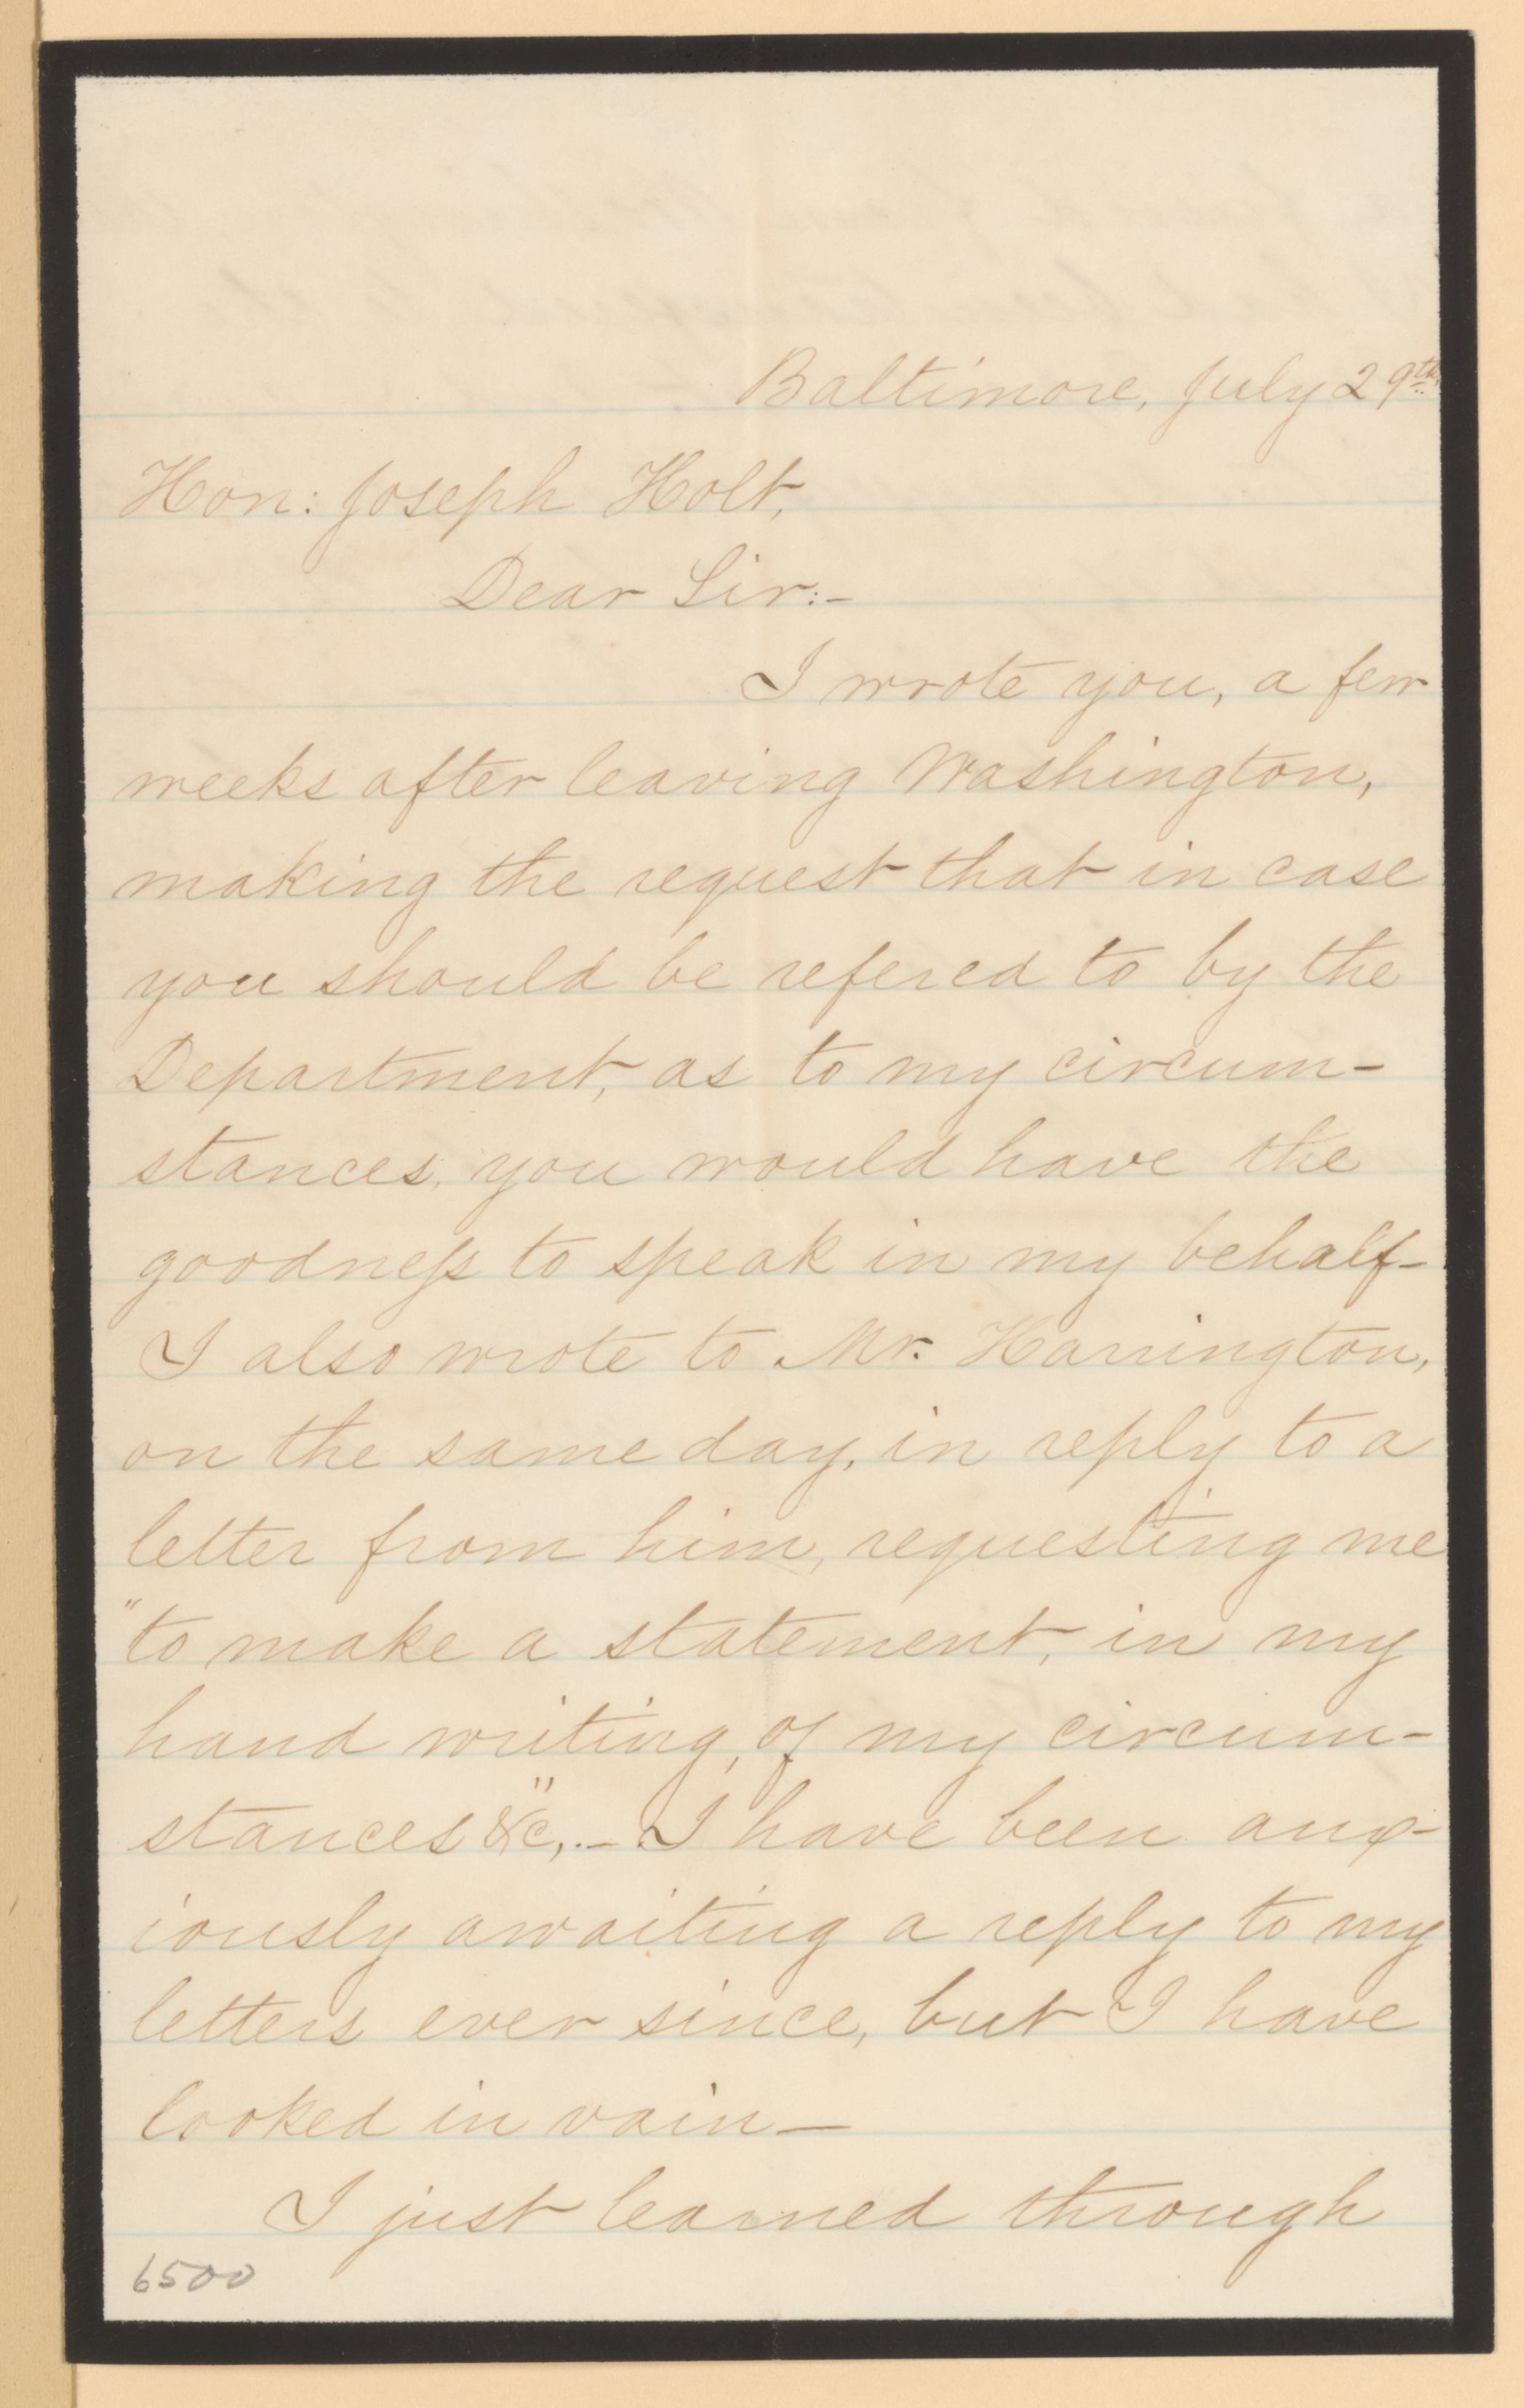 Baltimore, July 29th.
Hon: Joseph Holt,
Dear Sir:-
I wrote you, a few
weeks after leaving Washington,
making the request that in case
you should be refered to by the
Department, as to my circum-
stances, you would have the
goodness to speak in my behalf-
I also wrote to Mr. Harrington,
on the same day, in reply to a
letter from him, requesting me
"to make a statement, in my
hand writing, of my circum-
stances &c," .- I have been anx-
iously awaiting a reply to my
letters ever since, but I have
looked in vain—
I just learned through
6500